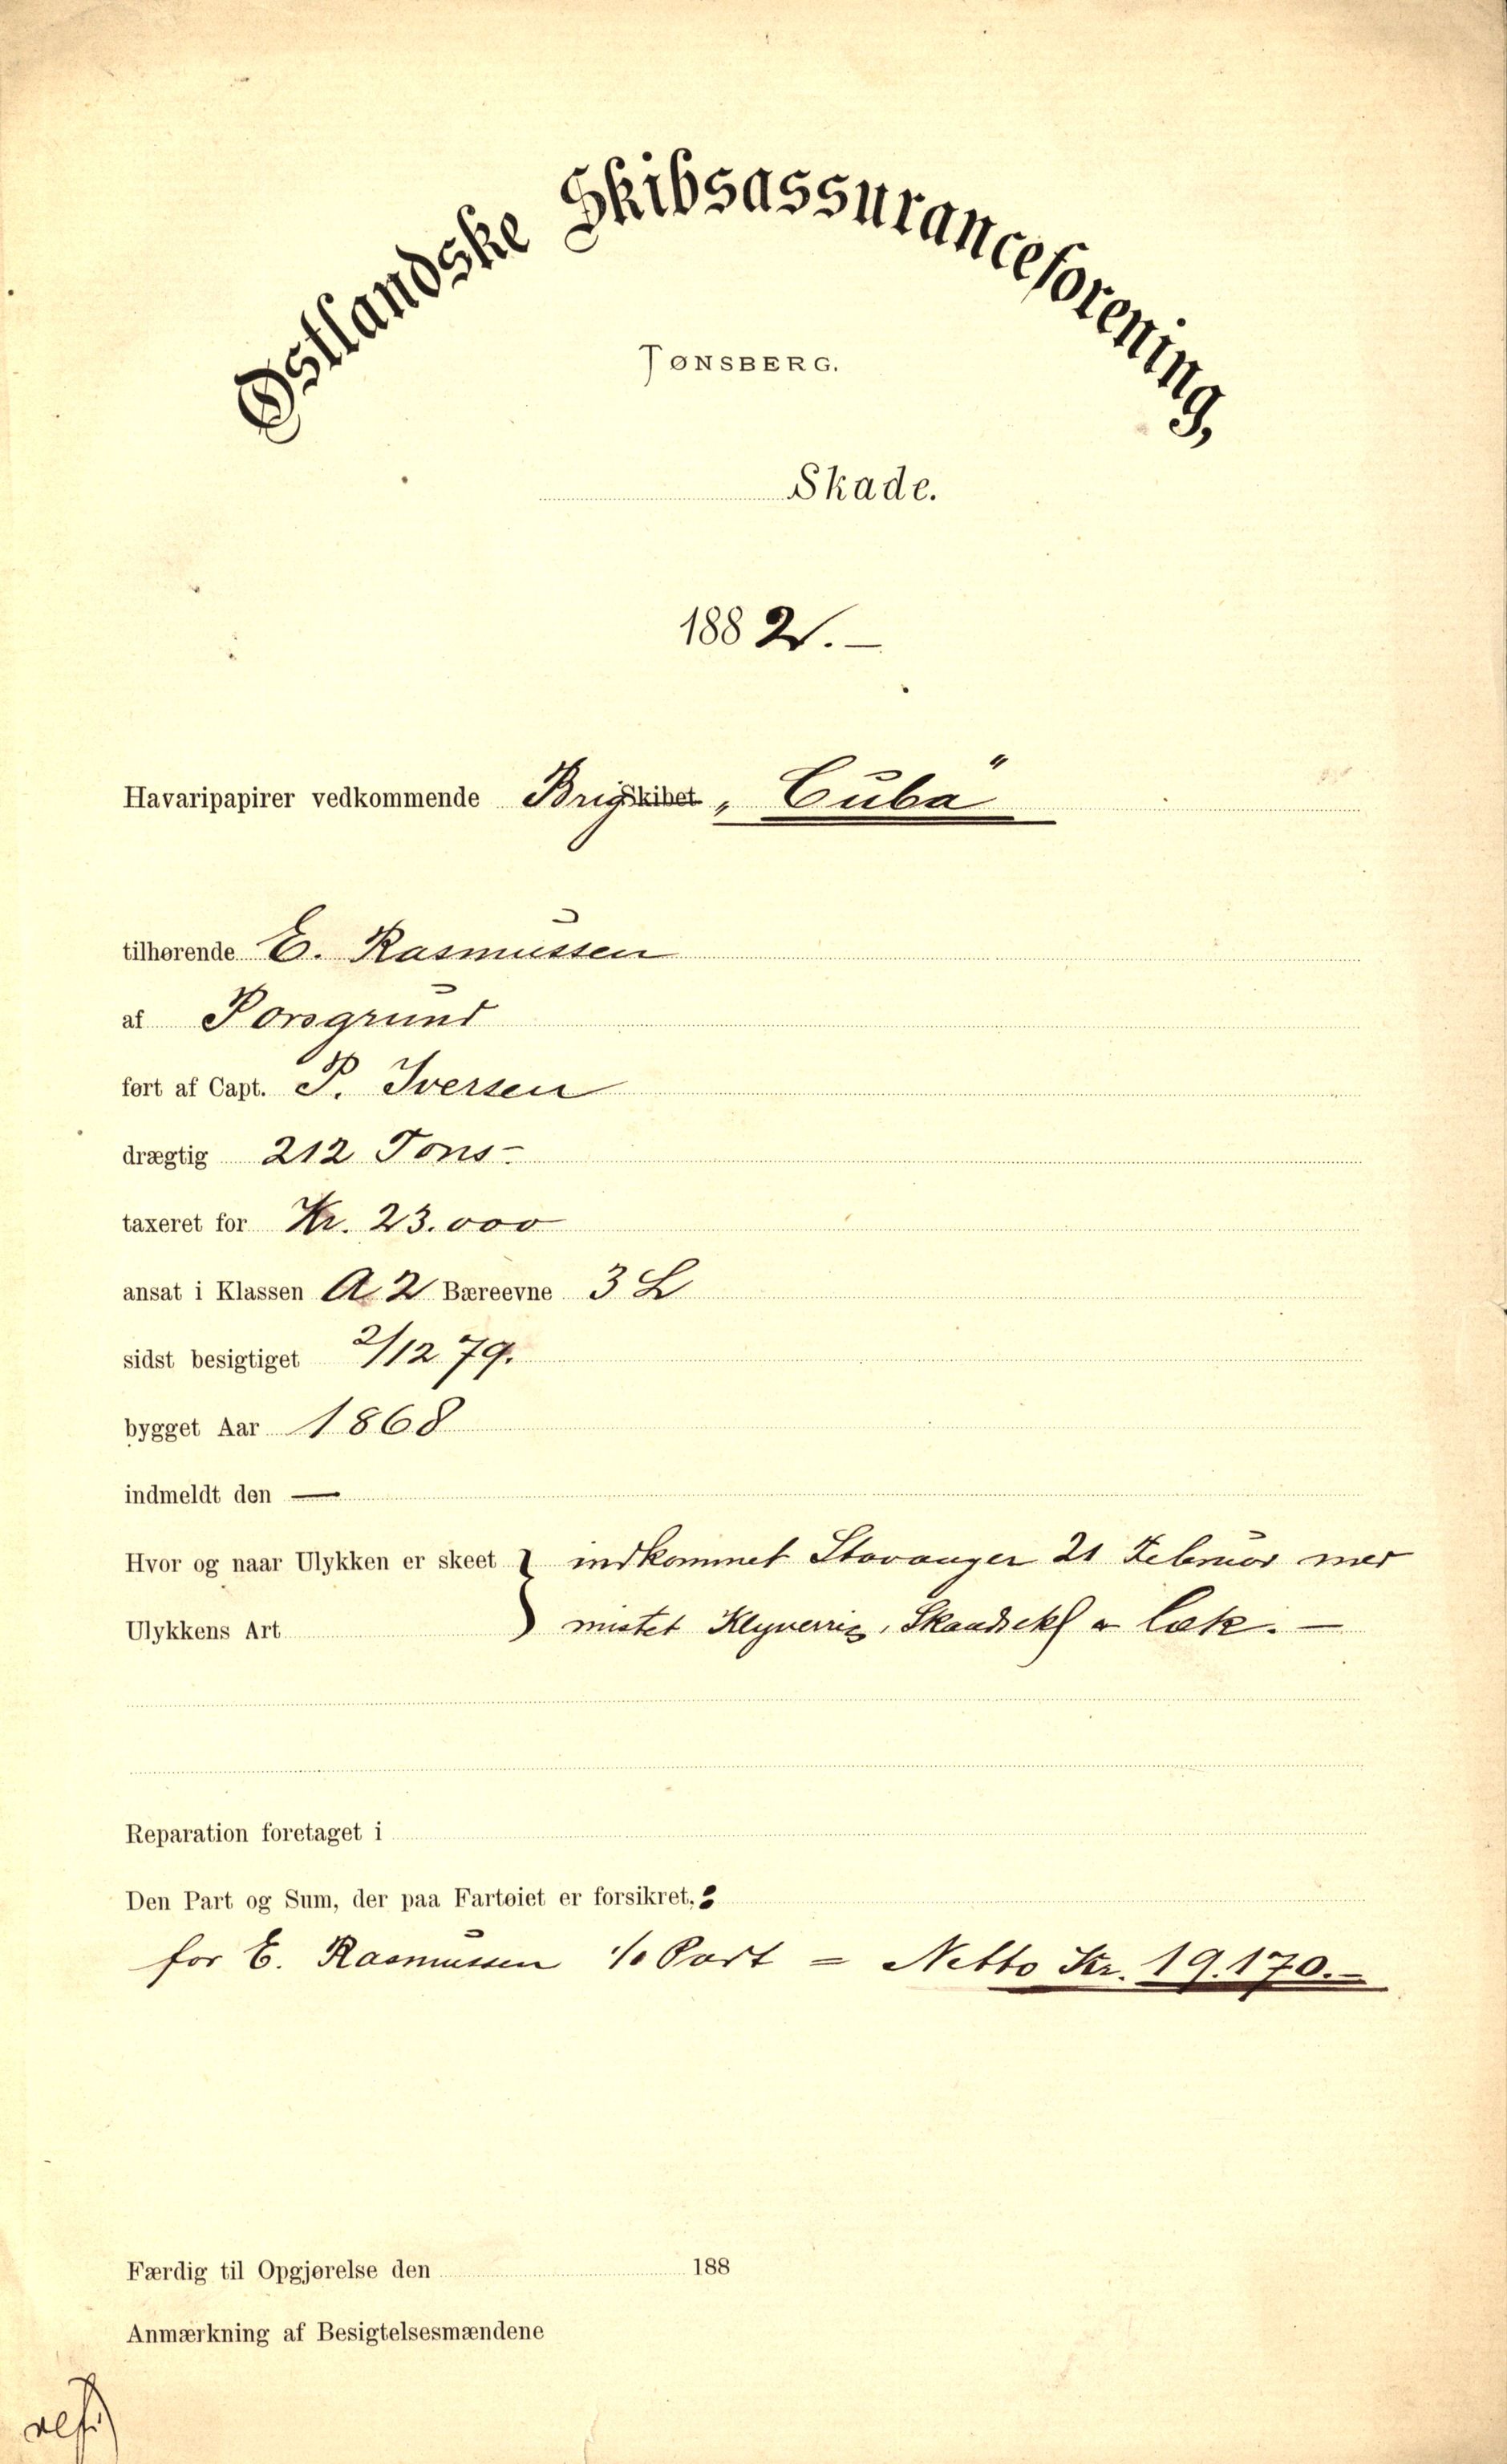 Østlandske Skibsassuranceforening,
TØNSBERG.
Skade.
1882.—
Havaripapirer vedkommende Brig Skibet „Cuba"
tilhørende E. Rasmussen
af Porsgrund
ført af Capt. P. Iversen
drægtig 212 Tons-
taxeret for Kr. 23.000
ansat i Klassen A 2 Bæreevne 3 L
sidst besigtiget 2/12 79.
bygget Aar 1868
indmeldt den —
Hvor og naar Ulykken er skeet } indkommet Stavanger 21 Februar med
Ulykkens Art mistet Klyverrig, læk. —
Reparation foretaget i
Den Part og Sum, der paa Fartøiet er forsikret,:
for E. Rasmussen Part = Netto Kr. 19.170.-
Færdig til Opgjørelse den 188
Anmærkning af Besigtelsesmændene